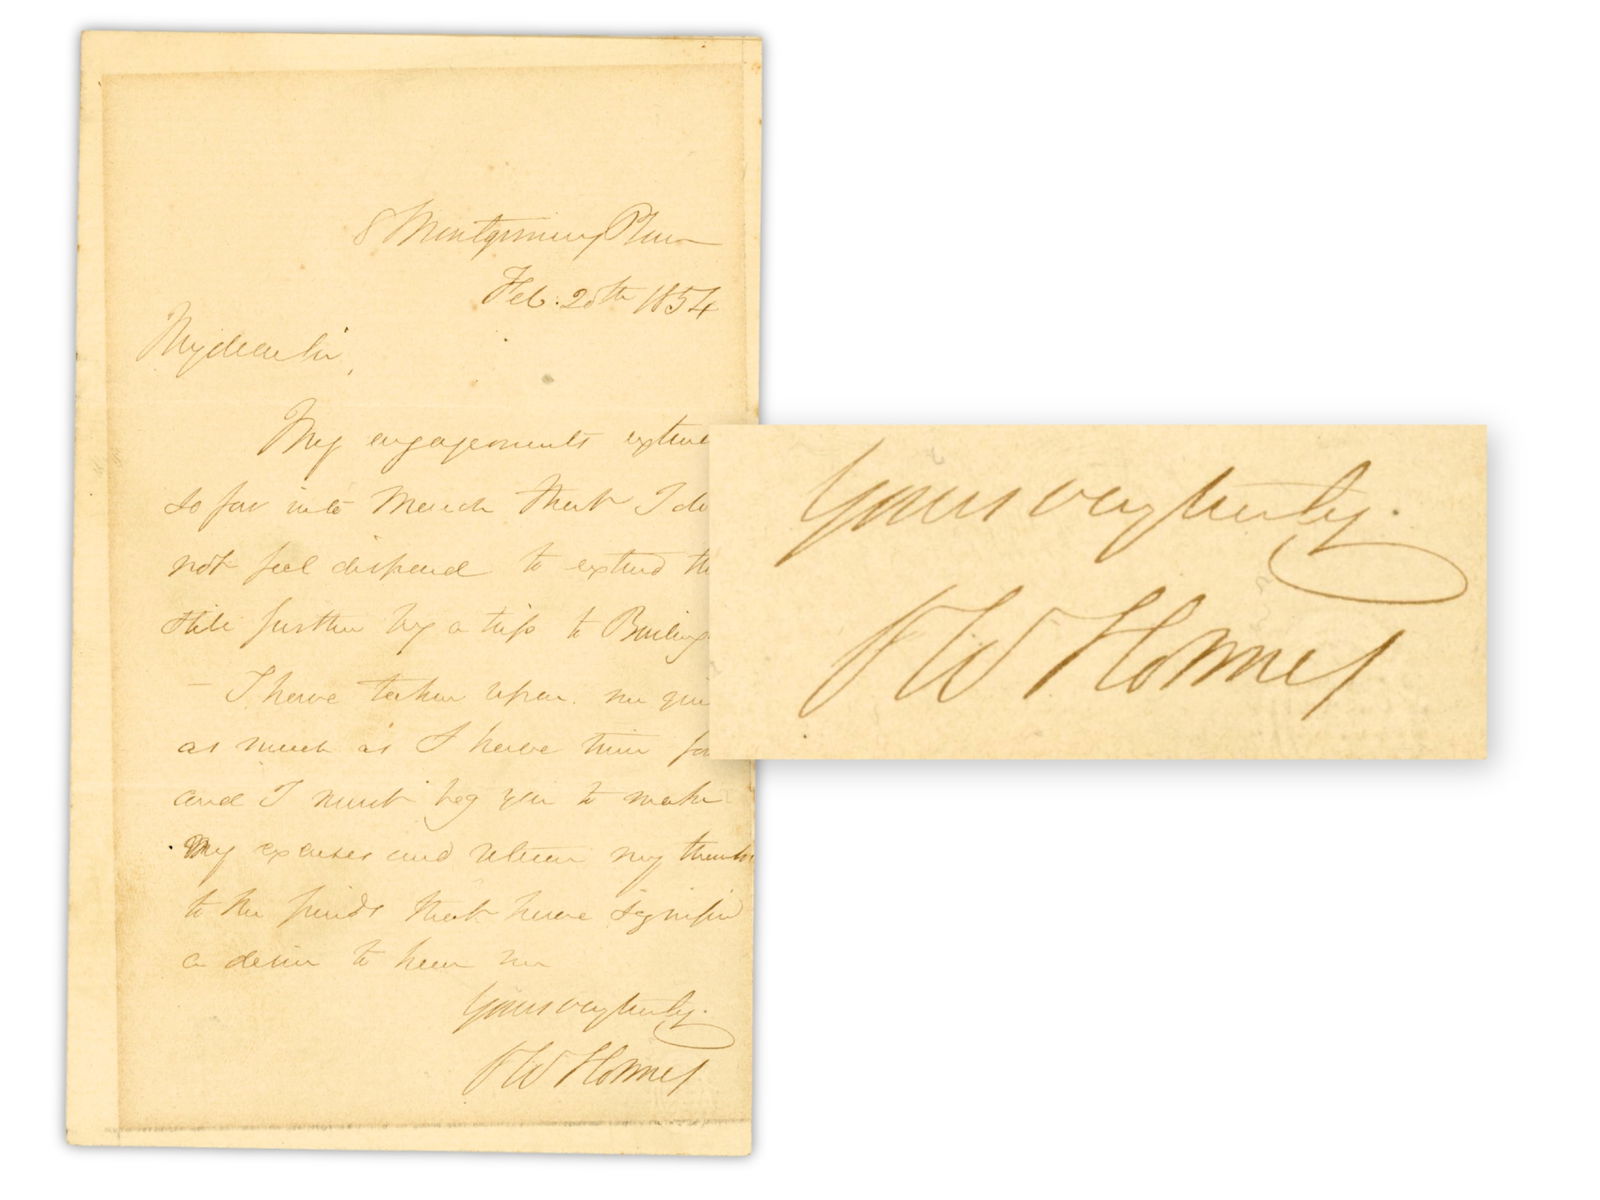 8 Montgomery Place
Feb. 20th 1854
My dear Sir,
My engagements exten
so far into March that I do
not feel disposed to extend th
still further by a trip to Burling
– I have taken upon me
as much as I have time fo
and I must beg you to make
My excuses and return my thanks
to the friends that have signified
a desire to hear me
Yours very truly.
O W Holmes
Yours very truly.
O W Holmes